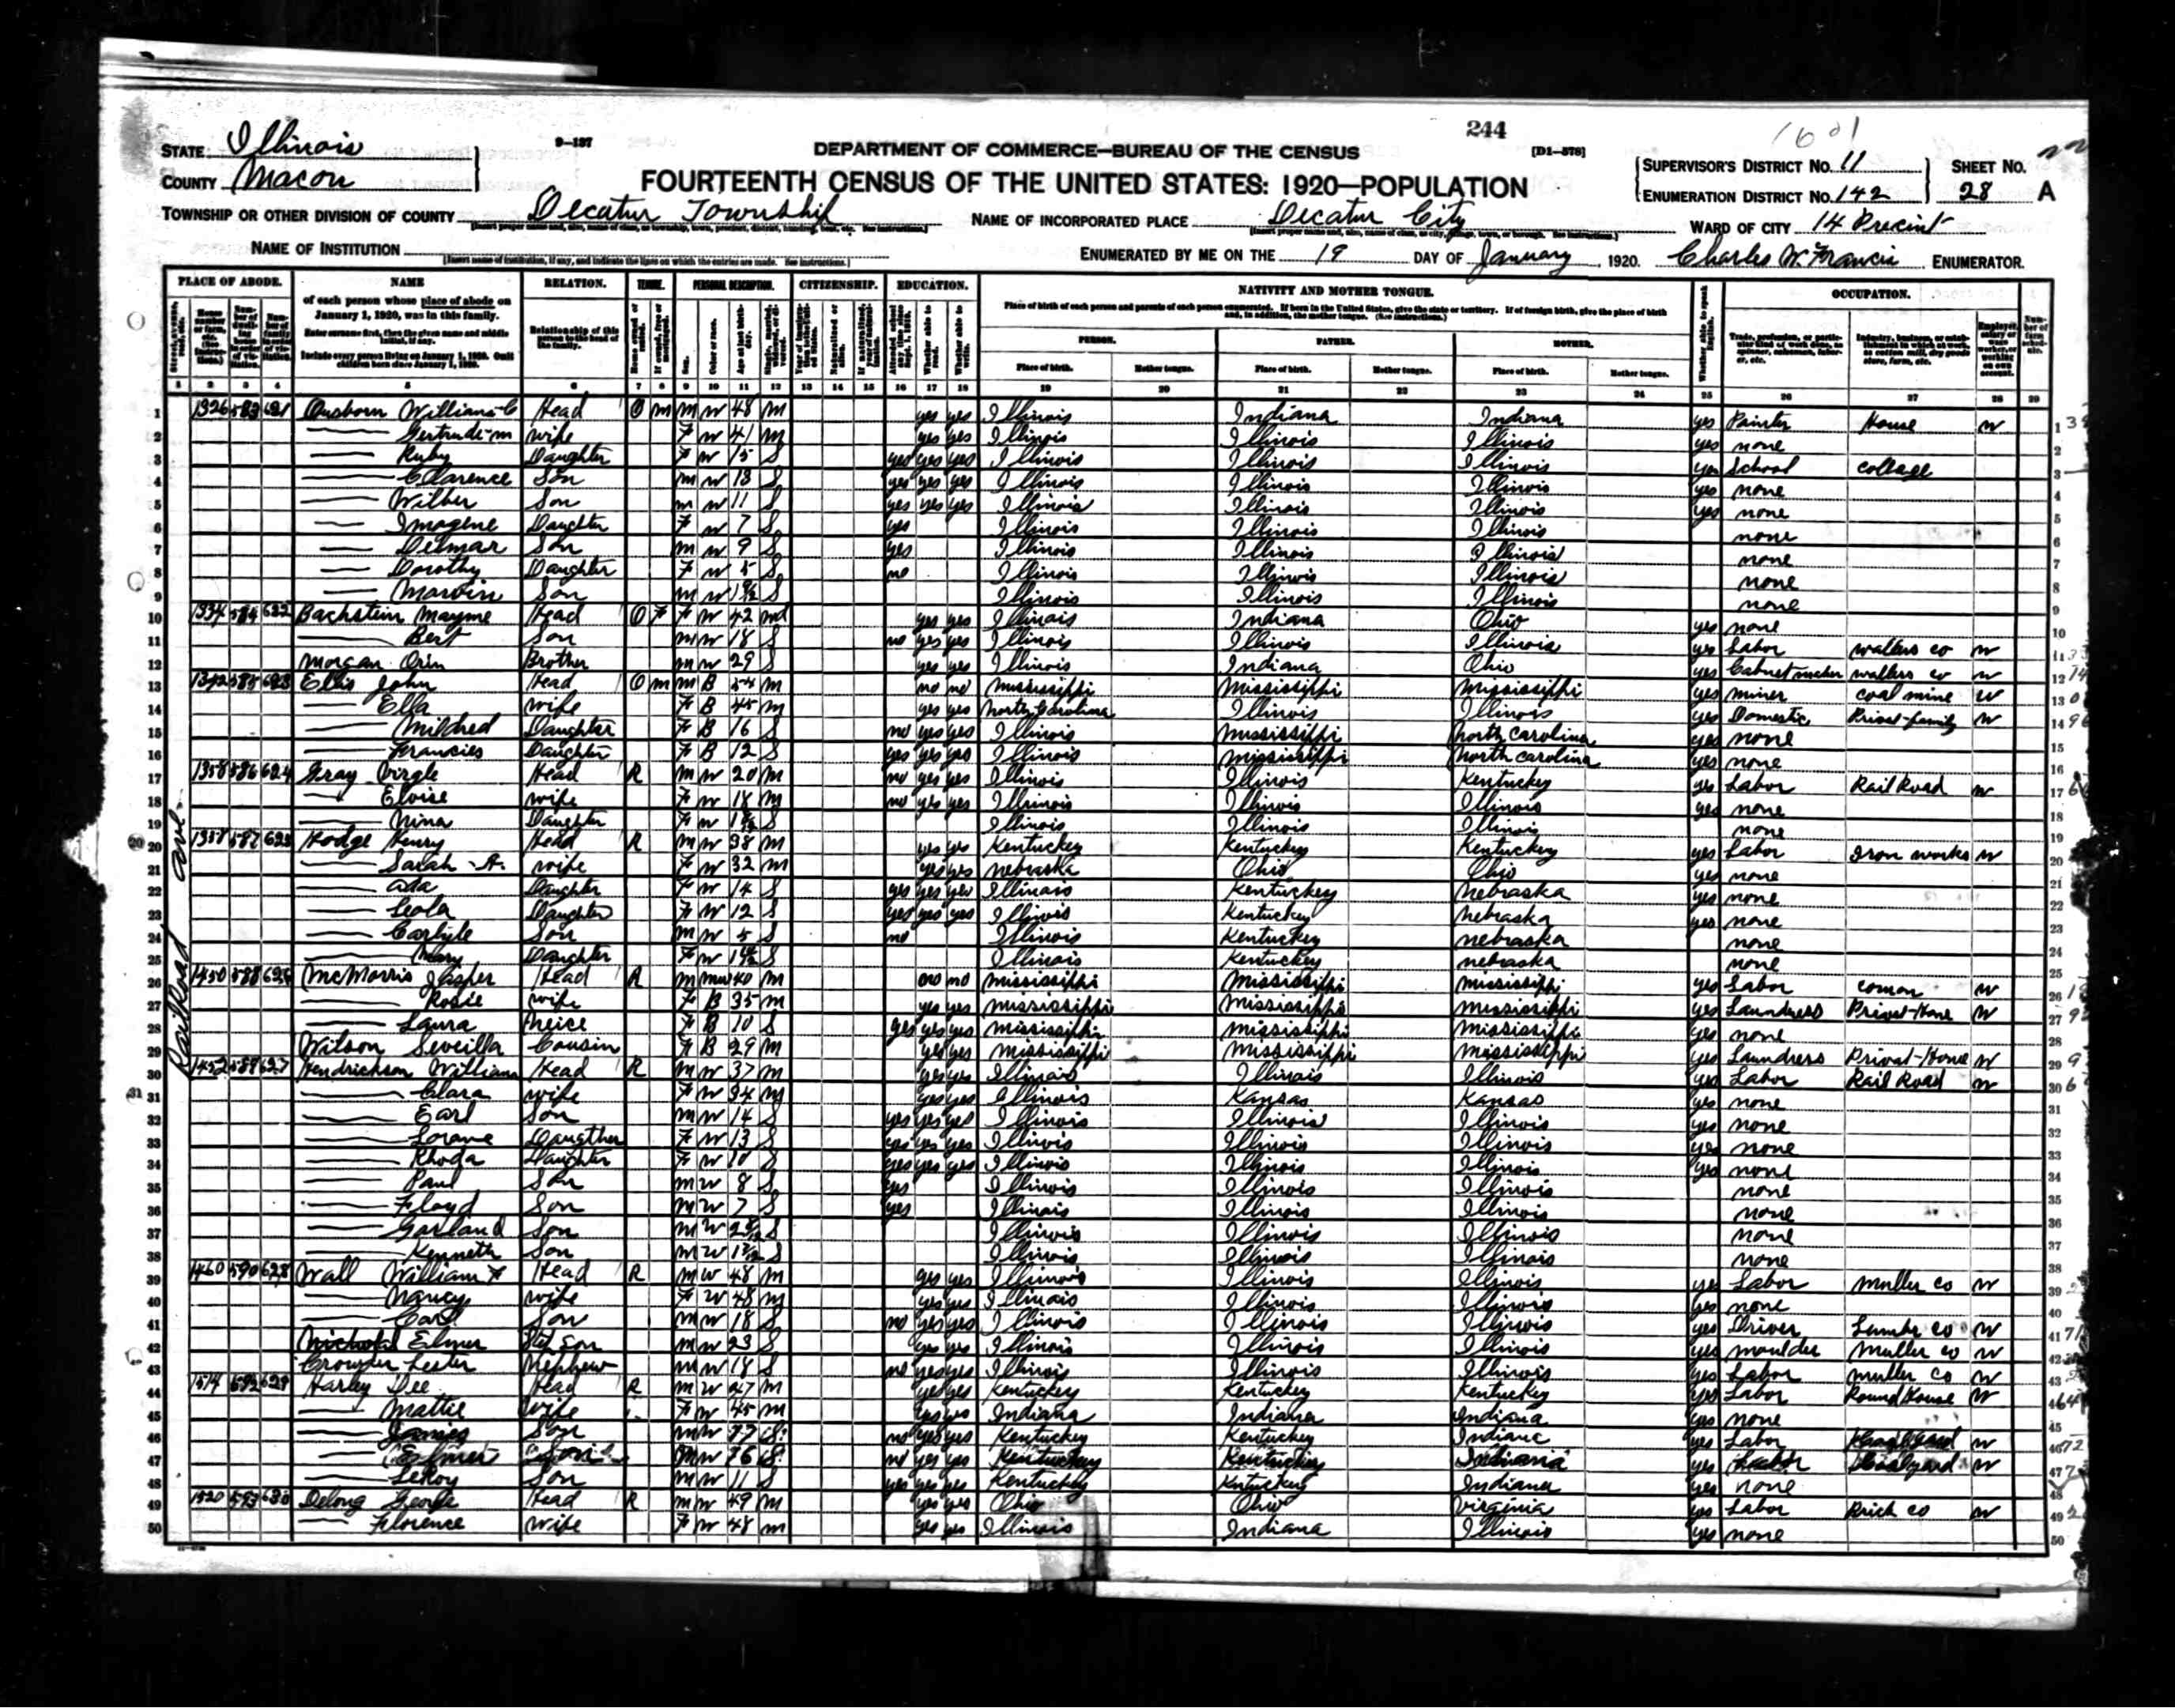 244
STATE Illinois
9-137
DEPARTMENT OF COMMERCE—BUREAU OF THE CENSUS
[D1-578]
SUPERVISOR'S DISTRICT No. 11
SHEET No.
COUNTY Macon
FOURTEENTH CENSUS OF THE UNITED STATES: 1920—POPULATION
ENUMERATION DISTRICT No. 142
28 A
TOWNSHIP OR OTHER DIVISION OF COUNTY Decatur Township
NAME OF INCORPORATED PLACE Decatur City
WARD OF CITY 14 Precint
NAME OF INSTITUTION
ENUMERATED BY ME ON THE 19 DAY OF January, 1920. Charles W. Francis ENUMERATOR.
PLACE OF ABODE. NAME RELATION. TENURE. PERSONAL DESCRIPTION. CITIZENSHIP. EDUCATION. NATIVITY AND MOTHER TONGUE. OCCUPATION.
of each person whose place of abode on January 1, 1920, was in this family.
Enter surname first, then the given name and middle initial, if any.
Include every person living on January 1, 1920. Omit children born since January 1, 1920.
Relationship of this person to the head of the family.
Place of birth of each person and parents of each person enumerated. If born in the United States, give the state or territory. If of foreign birth, give the place of birth and, in addition, the mother tongue. (See instructions.)
PERSON. FATHER. MOTHER.
Place of birth. Mother tongue. Place of birth. Mother tongue. Place of birth. Mother tongue.
1 2 3 4 5 6 7 8 9 10 11 12 13 14 15 16 17 18 19 20 21 22 23 24 25 26 27 28 29
Railroad ave
1 1326 583 621 William C Head O m m w 48 m yes yes Illinois Indiana Indiana yes Painter House w
2 Gertrude m wife F w 41 m yes yes Illinois Illinois Illinois yes none
3 Ruby Daughter F w 15 S yes yes yes Illinois Illinois Illinois yes School college
4 Clarence Son m w 13 S yes yes yes Illinois Illinois Illinois yes none
5 Wilber Son m w 11 S yes yes yes Illinois Illinois Illinois yes none
6 Imogene Daughter F w 7 S yes Illinois Illinois Illinois none
7 Delmar Son m w 9 S yes Illinois Illinois Illinois none
8 Dorothy Daughter F w 5 S no Illinois Illinois Illinois none
9 Marvin Son m w S Illinois Illinois Illinois none
10 1334 584 622 Bachstein Mayme Head O F F w 42 yes yes Illinois Indiana Ohio yes none
11 Bert Son m w 18 S no yes yes Illinois Illinois Illinois yes Labor wallers co w
12 Morgan Orin Brother m w 29 S yes yes Illinois Indiana Ohio yes wallers co w
13 1342 585 623 Ellis John Head O m m B 54 m no no Mississippi Mississippi Mississippi yes miner coal mine w
14 Ella wife F B 45 m yes yes North Carolina Illinois Illinois yes Domestic Privet-family w
15 Mildred Daughter F B 16 S no yes yes Illinois Mississippi North Carolina yes none
16 Francies Daughter F B 12 S yes yes yes Illinois Mississippi North Carolina yes none
17 1358 586 624 Gray Virgle Head R m w 20 m no yes yes Illinois Illinois Kentucky yes Labor Rail Road w
18 Eloise wife F w 18 m no yes yes Illinois Illinois Illinois yes none
19 Nina Daughter F w S Illinois Illinois Illinois none
20 587 625 Hodge Henry Head R m w 38 m yes yes Kentucky Kentucky Kentucky yes Labor Iron works w
21 Sarah A. wife F w 32 m yes yes Nebraska Ohio Ohio yes none
22 Ada Daughter F w 14 S yes yes yes Illinois Kentucky Nebraska yes none
23 Leola Daughter F w 12 S yes yes yes Illinois Kentucky Nebraska yes none
24 Carlyle Son m w 5 S no Illinois Kentucky Nebraska none
25 Mary Daughter F w S Illinois Kentucky Nebraska none
26 1450 588 626 McMorris Jasper Head R m mu 40 m no no Mississippi Mississippi Mississippi yes Labor comon w
27 Rosie wife F B 35 m yes yes Mississippi Mississippi Mississippi yes Laundress Privet-Home w
28 Laura neice F B 10 S yes yes yes Mississippi Mississippi Mississippi yes none
29 Wilson Sevcilla Cousin F B 29 m yes yes Mississippi Mississippi Mississippi yes Laundress Privat-Home w
30 1452 589 627 Hendrickson William Head R m w 37 m yes yes Illinois Illinois Illinois yes Labor Rail Road w
31 Clara wife F w 34 m yes yes Illinois Kansas Kansas yes none
32 Earl Son m w 14 S yes yes yes Illinois Illinois Illinois yes none
33 Lorane Daugther F w 13 S yes yes yes Illinois Illinois Illinois yes none
34 Rhoda Daughter F w 10 S yes yes yes Illinois Illinois Illinois yes none
35 Paul Son m w 8 S yes Illinois Illinois Illinois none
36 Floyd Son m w 7 S yes Illinois Illinois Illinois none
37 Garland Son m w S Illinois Illinois Illinois none
38 Kenneth Son m w S Illinois Illinois Illinois none
39 1460 590 628 Wall William F Head R m w 48 m yes yes Illinois Illinois Illinois yes Labor muller co w
40 Nancy wife F w 48 m yes yes Illinois Illinois Illinois yes none
41 Carl Son m w 18 S no yes yes Illinois Illinois Illinois yes Driver Lumbr co w
42 Elmer Step son m w 23 S yes yes Illinois Illinois Illinois yes moulder muller co w
43 Lester Nephew m w 18 S no yes yes Illinois Illinois Illinois yes Labor muller co w
44 1514 592 629 Harley Dee Head R m w 47 m yes yes Kentucky Kentucky Kentucky yes Labor Round House w
45 Mattie wife F w 45 m yes yes Indiana Indiana Indiana yes none
46 James Son m w S no yes yes Kentucky Kentucky Indiana yes Labor w
47 Elmer m w S no yes yes Kentucky Kentucky Indiana yes w
48 LeRoy Son m w 11 S yes yes yes Kentucky Kentucky Indiana yes none
49 1520 593 630 Delong George Head R m w 49 m yes yes Ohio Ohio Virginia yes Labor Brick co w
50 Florence wife F w 48 m yes yes Illinois Indiana Illinois yes none